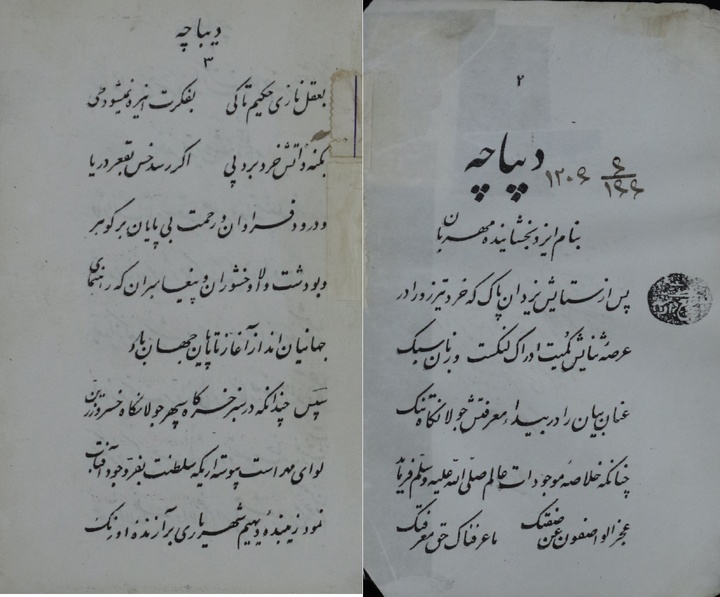 ۲
دیباچه
بنام ایزد بخشاینده مهربان
پس از ستایش یزدان پاک که خرد تیز رو را در
عرصهٔ ثنایش کمیت ادراک لنگست و زبان سبک
عنان بیان را در بیداء معرفتش جولانگاه تنگ
چنانکه خلاصهٔ موجودات عالم صلی الله علیه وسلم فرماید
عجز الواصفون عن صفتک ما عرفناک حق معرفتک
دیباچه
۳
بعقل نازی حکیم تا کی بفکرت این ره نمیشود طی
بکنه ذاتش خرد برد پی اگر رسد خس بقعر دریا
و درود فراوان و رحمت بی پایان بر گوهر
والا وخشوران و پیغامبران که رهنمای
جهانیان اند از آغاز تا پایان جهان باد
سپس چندانکه در سبز خرگاه سپهر جولانگاه خسرو زرین
لوای مهر است پیوسته اریکه سلطنت بفر وجود آفتاب
نمود زیبنده دیهیم شهریاری برازنده اورنگ